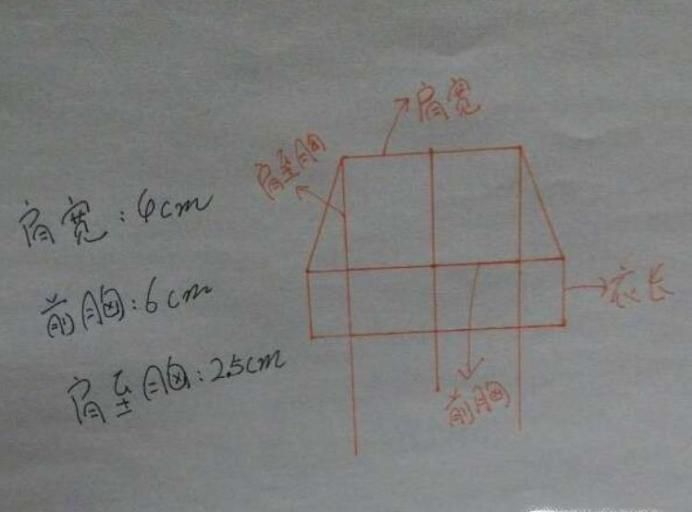 肩宽
肩至胸
肩宽:4cm
衣长
前胸:6cm
肩至胸:2.5cm
前胸